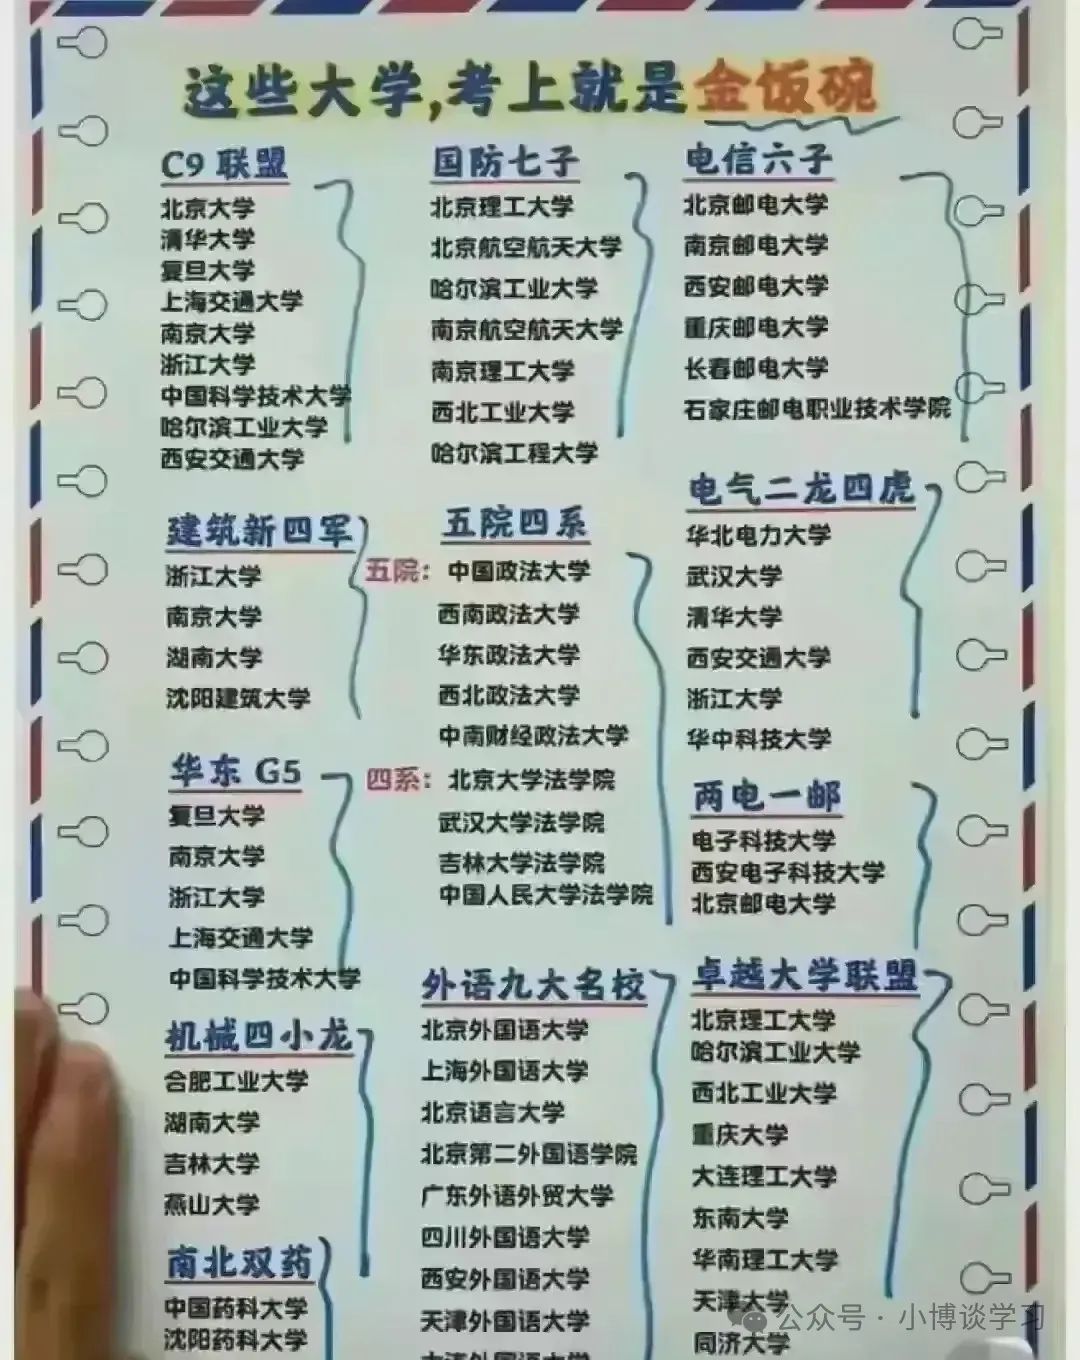 这些大学,考上就是金饭碗
C9 联盟
北京大学
清华大学
复旦大学
上海交通大学
南京大学
浙江大学
中国科学技术大学
哈尔滨工业大学
西安交通大学
国防七子
北京理工大学
北京航空航天大学
哈尔滨工业大学
南京航空航天大学
南京理工大学
西北工业大学
哈尔滨工程大学
电信六子
北京邮电大学
南京邮电大学
西安邮电大学
重庆邮电大学
长春邮电大学
石家庄邮电职业技术学院
建筑新四军
浙江大学
南京大学
湖南大学
沈阳建筑大学
五院四系
五院：中国政法大学
西南政法大学
华东政法大学
西北政法大学
中南财经政法大学
四系：北京大学法学院
武汉大学法学院
吉林大学法学院
中国人民大学法学院
电气二龙四虎
华北电力大学
武汉大学
清华大学
西安交通大学
浙江大学
华中科技大学
华东 G5
复旦大学
南京大学
浙江大学
上海交通大学
中国科学技术大学
两电一邮
电子科技大学
西安电子科技大学
北京邮电大学
机械四小龙
合肥工业大学
湖南大学
吉林大学
燕山大学
外语九大名校
北京外国语大学
上海外国语大学
北京语言大学
北京第二外国语学院
广东外语外贸大学
四川外国语大学
西安外国语大学
天津外国语大学
卓越大学联盟
北京理工大学
哈尔滨工业大学
西北工业大学
重庆大学
大连理工大学
东南大学
华南理工大学
天津大学
同济大学
南北双药
中国药科大学
沈阳药科大学
公众号 · 小博谈学习